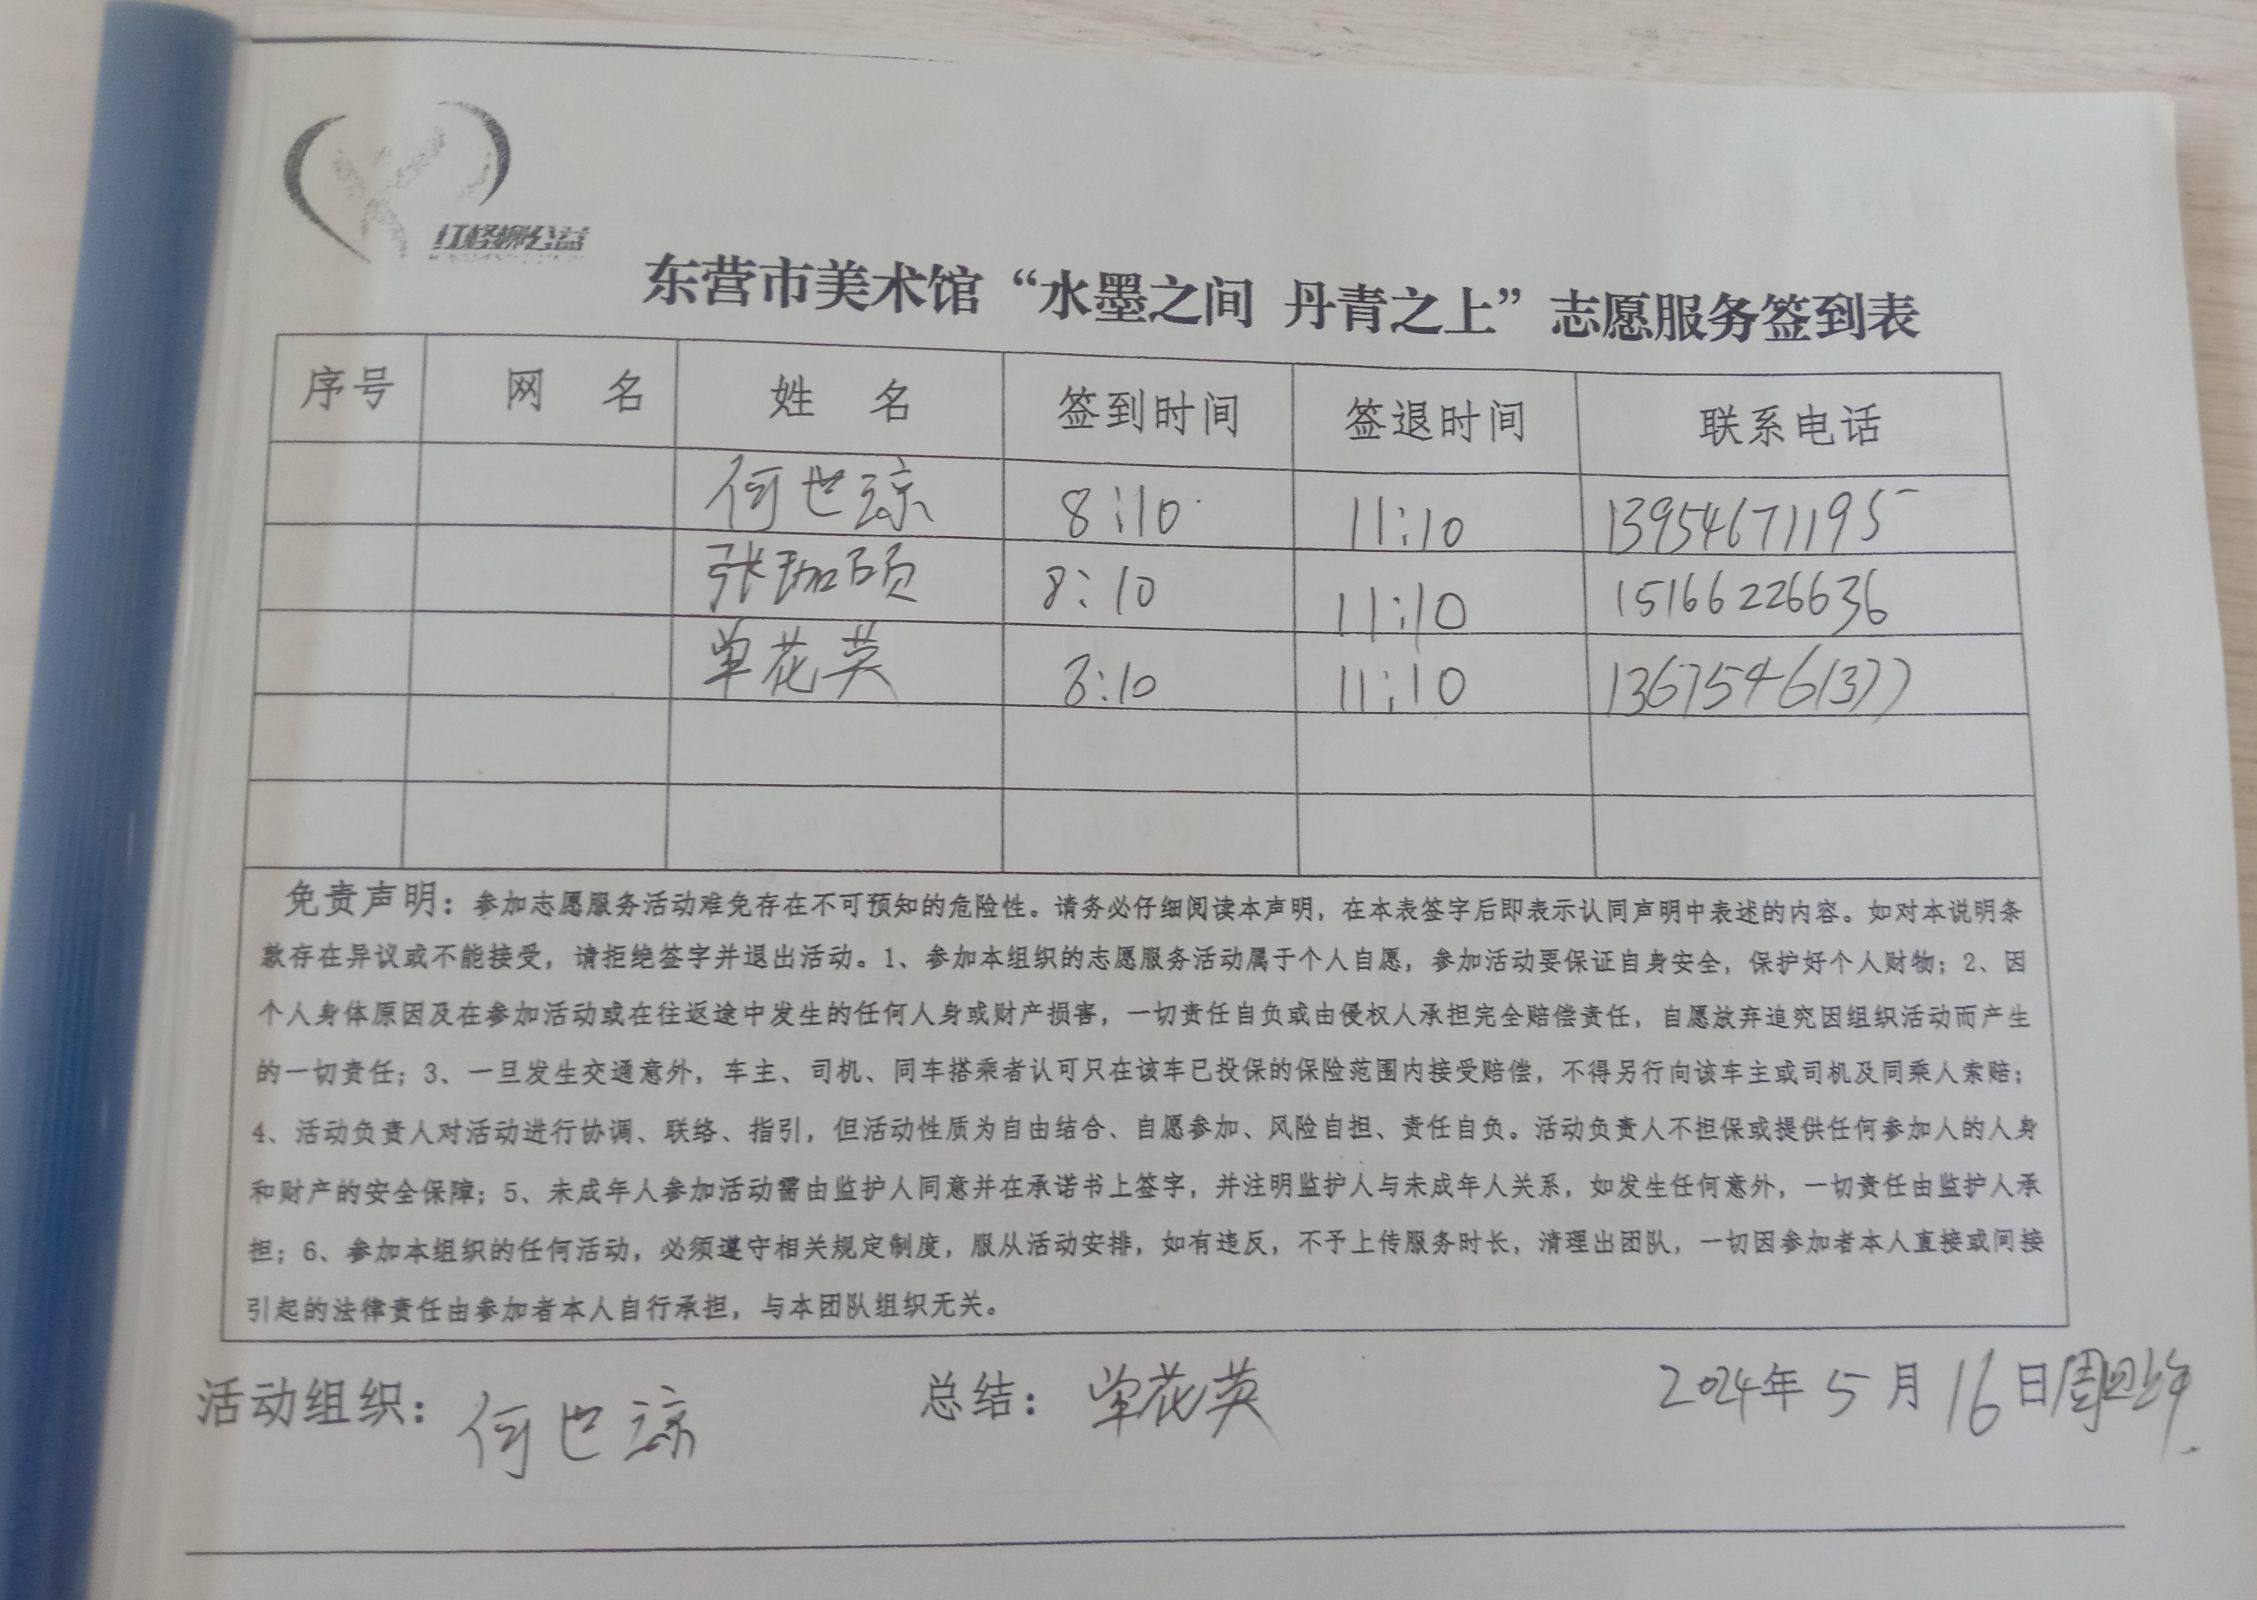 红柽柳公益
东营市美术馆“水墨之间 丹青之上”志愿服务签到表
序号 网 名 姓 名 签到时间 签退时间 联系电话
何世琼 8:10 11:10 13954671195
张珈硕 8:10 11:10 15166226636
单花英 8:10 11:10 13675461377
免责声明：参加志愿服务活动难免存在不可预知的危险性。请务必仔细阅读本声明，在本表签字后即表示认同声明中表述的内容。如对本说明条
款存在异议或不能接受，请拒绝签字并退出活动。1、参加本组织的志愿服务活动属于个人自愿，参加活动要保证自身安全，保护好个人财物；2、因
个人身体原因及在参加活动或在往返途中发生的任何人身或财产损害，一切责任自负或由侵权人承担完全赔偿责任，自愿放弃追究因组织活动而产生
的一切责任；3、一旦发生交通意外，车主、司机、同车搭乘者认可只在该车已投保的保险范围内接受赔偿，不得另行向该车主或司机及同乘人索赔；
4、活动负责人对活动进行协调、联络、指引，但活动性质为自由结合、自愿参加、风险自担、责任自负。活动负责人不担保或提供任何参加人的人身
和财产的安全保障；5、未成年人参加活动需由监护人同意并在承诺书上签字，并注明监护人与未成年人关系，如发生任何意外，一切责任由监护人承
担；6、参加本组织的任何活动，必须遵守相关规定制度，服从活动安排，如有违反，不予上传服务时长，清理出团队，一切因参加者本人直接或间接
引起的法律责任由参加者本人自行承担，与本团队组织无关。
活动组织：何世琼 总结：单花英 2024年5月16日周四上午